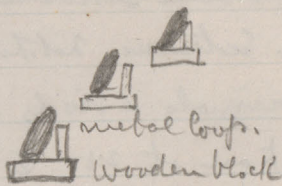 metal loops.
wooden block